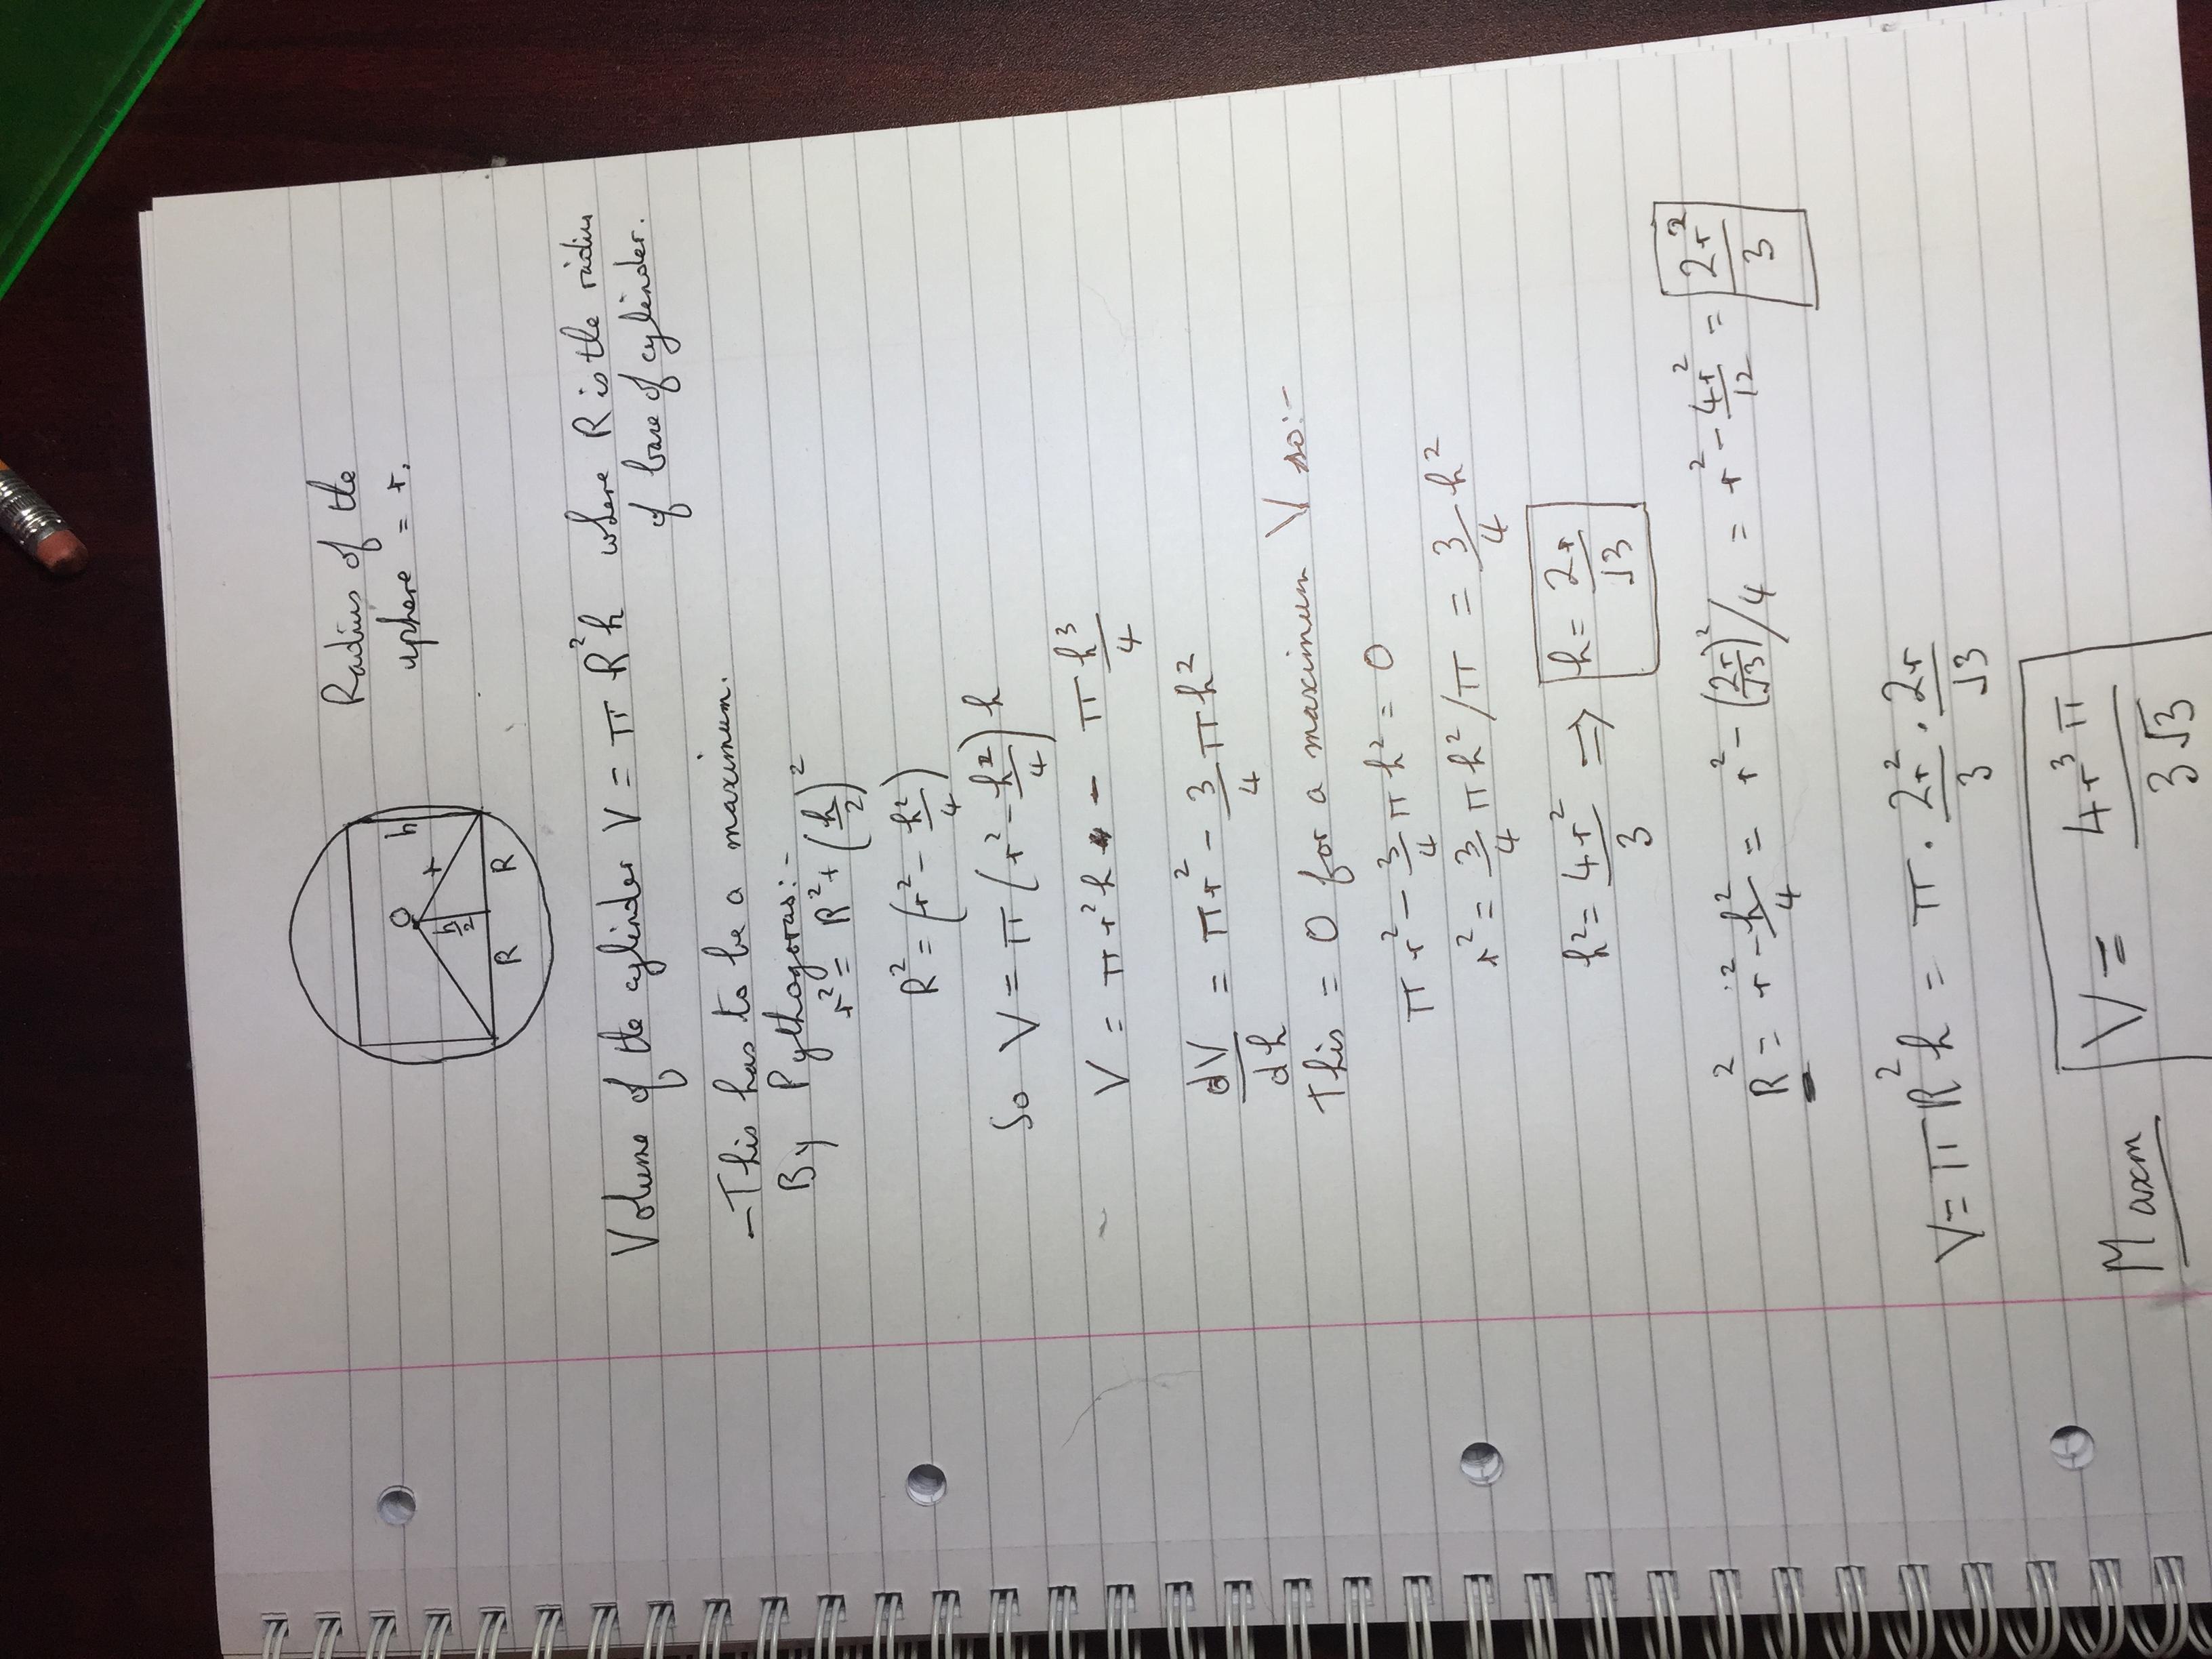 Radius of the
sphere = r.
O
r
h
h/2
R R
Volume of the cylinder V = π R²h where R is the radius
of base of cylinder.
– This has to be a maximum.
By Pythagoras:-
r² = R² + (h/2)²
R² = (r² - h²/4)
So V = π (r² - h²/4) h
V = π r² h - π h³/4
dV/dh = πr² - 3/4 πh²
This = 0 for a maximum V so:-
π r² - 3/4 π h² = 0
r² = 3/4 π h² / π = 3/4 h²
h² = 4r²/3 ⇒ h = 2r/√3
R² = r² - h²/4 = r² - (2r/√3)²/4 = r² - 4r²/12 = 2r²/3
V = π R² h = π . 2r²/3 . 2r/√3
Maxm V = 4r³π/3√3